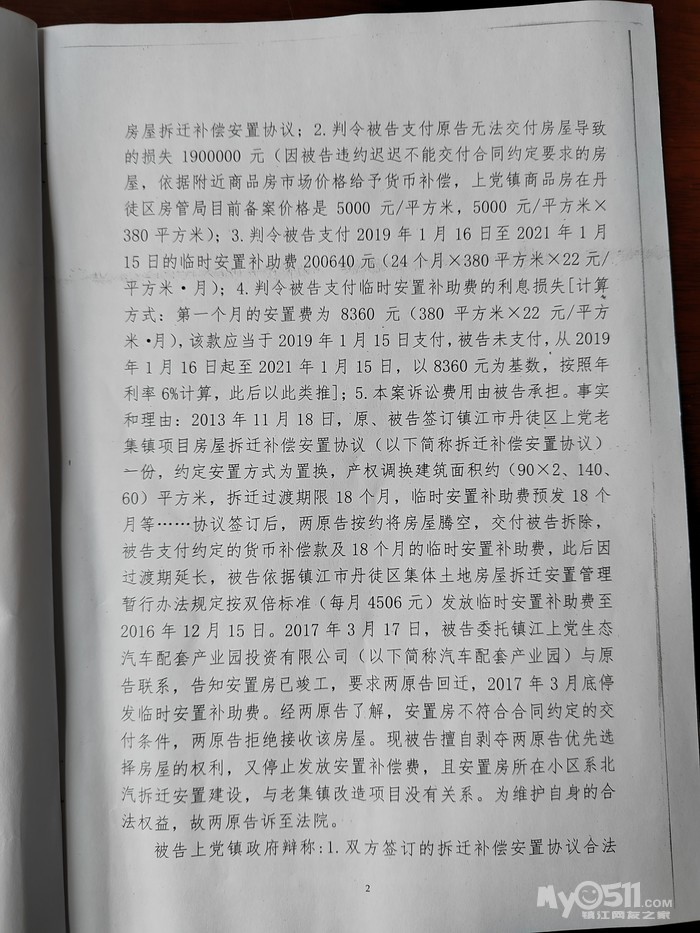 房屋拆迁补偿安置协议；2.判令被告支付原告无法交付房屋导致
的损失 1900000 元（因被告违约迟迟不能交付合同约定要求的房
屋，依据附近商品房市场价格给予货币补偿，上党镇商品房在丹
徒区房管局目前备案价格是 5000 元/平方米，5000 元/平方米×
380 平方米）；3.判令被告支付 2019 年 1 月 16 日至 2021 年 1 月
15 日的临时安置补助费 200640 元（24 个月×380 平方米×22 元/
平方米·月）；4.判令被告支付临时安置补助费的利息损失[计算
方式：第一个月的安置费为 8360 元（380 平方米×22 元/平方
米·月），该款应当于 2019 年 1 月 15 日支付，被告未支付，从 2019
年 1 月 16 日起至 2021 年 1 月 15 日，以 8360 元为基数，按照年
利率 6%计算，此后以此类推]；5.本案诉讼费用由被告承担。事实
和理由：2013 年 11 月 18 日，原、被告签订镇江市丹徒区上党老
集镇项目房屋拆迁补偿安置协议（以下简称拆迁补偿安置协议）
一份，约定安置方式为置换，产权调换建筑面积约（90×2、140、
60）平方米，拆迁过渡期限 18 个月，临时安置补助费预发 18 个
月等……协议签订后，两原告按约将房屋腾空，交付被告拆除，
被告支付约定的货币补偿款及 18 个月的临时安置补助费，此后因
过渡期延长，被告依据镇江市丹徒区集体土地房屋拆迁安置管理
暂行办法规定按双倍标准（每月 4506 元）发放临时安置补助费至
2016 年 12 月 15 日。2017 年 3 月 17 日，被告委托镇江上党生态
汽车配套产业园投资有限公司（以下简称汽车配套产业园）与原
告联系，告知安置房已竣工，要求两原告回迁，2017 年 3 月底停
发临时安置补助费。经两原告了解，安置房不符合合同约定的交
付条件，两原告拒绝接收该房屋。现被告擅自剥夺两原告优先选
择房屋的权利，又停止发放安置补偿费，且安置房所在小区系北
汽拆迁安置建设，与老集镇改造项目没有关系。为维护自身的合
法权益，故两原告诉至法院。
被告上党镇政府辩称：1.双方签订的拆迁补偿安置协议合法
2
My0511.com
镇江网友之家